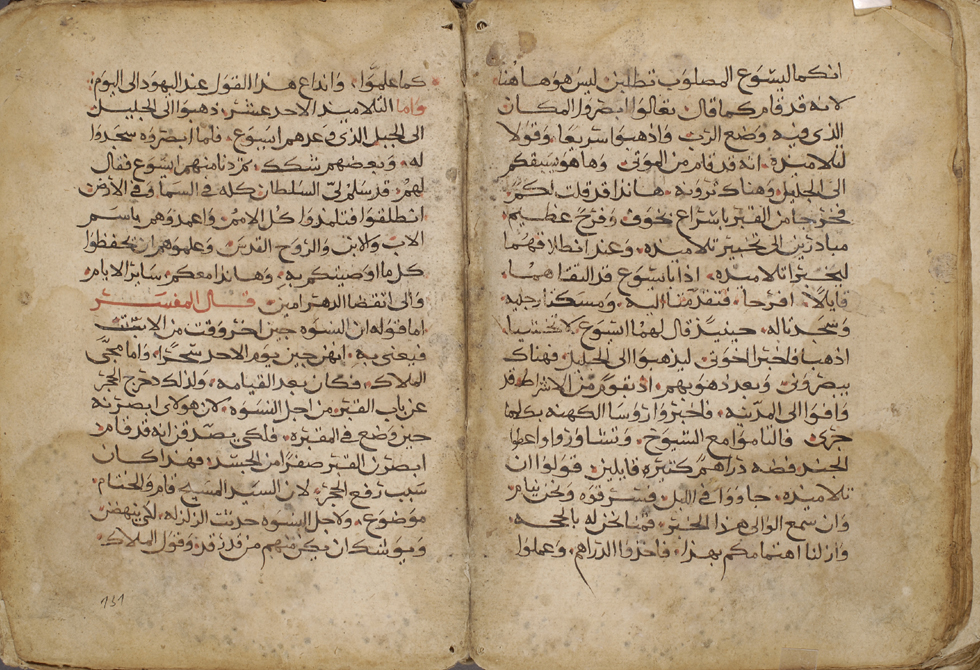 انكما ليسوع المصلوب تطلبن ليس هو هاهنا
لانه قد قام كما قال تعالوا ابصروا المكان
الذي فيه وضع الرب واذهبوا سريعا وقولا
لتلاميذه انه قد قام من الموتى وها هو يسبقكم
الى الجليل وهناك ترونه هانذا قد قلت لكم
فخرجتا من القبر باسراع بخوف وفرح عظيم
مبادرتين الى تخبير تلاميذه وعند انطلاقهما
ليخبرا تلاميذه اذا يسوع قد التقاهما
قايلا افرحا فتقدمتا اليه ومسكتا رجليه
وسجدتا له حينيذ قال لهما يسوع لا تخشيا
اذهبا فاخبرا اخوتي ليذهبوا الى الجليل فهناك
يبصروني وبعد ذهوبهم اذ نفر من الاشراط قد
وافوا الى المدينه فاخبروا روسا الكهنه بكلما
جرى فالتاموا مع الشيوخ وتشاوروا واعطوا
الجند فضه دراهم كثيره قايلين قولوا ان
تلاميذه جاووا في الليل فسرقوه ونحن نيام
وان سمع الوالي هذا الخبر فنحن له بالحجه
وازلنا اهتمامكم بهذا فاخذوا الدراهم وعملوا
كما علموا وانذاع هذا القول عند اليهود الى اليوم
واما التلاميذ الاحد عشر ذهبوا الى الجليل
الى الجبل الذي وعدهم يسوع فلما ابصروه سجدوا
له وبعضهم شكك ثم دنا منهم يسوع فقال
لهم قد سلم لي السلطان كله في السما وفي الارض
انطلقوا فتلمذوا كل الامم واعمدوهم باسم
الاب والابن والروح القدس وعلموهم ان يحفظوا
كل ما اوصيتكم به وهانذا معكم ساير الايام
والى انقضا الدهر امين قال المفسر
اما قوله ان النسوه جين اخر وقت من السبت
فيعنى به انهن جين يوم الاحد سحرا واما مجي
الملاك فكان بعد القيامه ولذلك دحرج الحجر
عن باب القبر من اجل النسوه لان هولاى ابصرنه
حين وضع في المقبره فلكي يصدقن انه قد قام
ابصرن القبر صفرا من الجسد فهذا كان
سبب رفع الحجر لان السيد المسيح قام والختام
موضوع ولاجل النسوه حدثت الزلزله لكي ينهض
ويوشك ان يكن منهم من قد رقد وقول الملاك
131